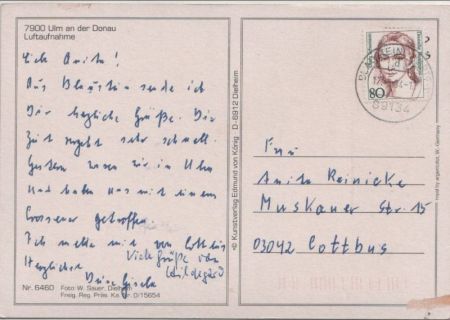 7900 Ulm an der Donau
Luftaufnahme
Lieb Anita!
Aus Blaustein sende ich
Dir herzliche Grüße. Die
Zeit vergeht sehr schnell.
Gestern waren wir in Ulm
Und haben uns mit einem
Crossener getroffen.
Ich melde mich von Cottbus
Herzlichst
Deine Gisela
Viele Grüße von
Hildegard
Nr. 6460
Foto: W. Sauer, Dielheim
Freig. Reg. Präs. Ka. Nr. 0/15654
© Kunstverlag Edmund von König · D-6912 Dielheim
80
89134
Frau
Anita Reinicke
Muskauer Str. 15
03042 Cottbus